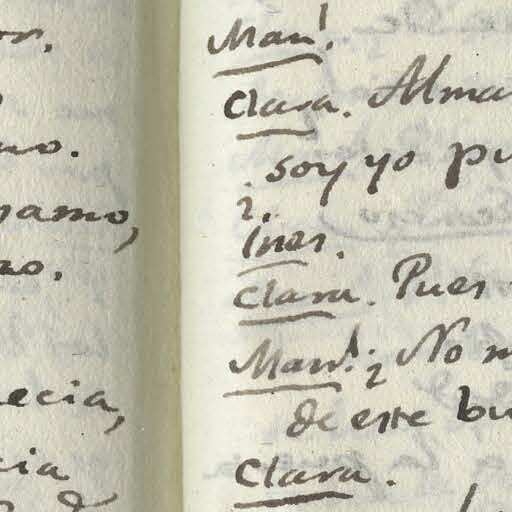 amo,
ecia,
cia
Man.l
Clara. Alma
soy yo pu
Ines.
Clara. Pues
Man.l ¿No m
de este bu
Clara.